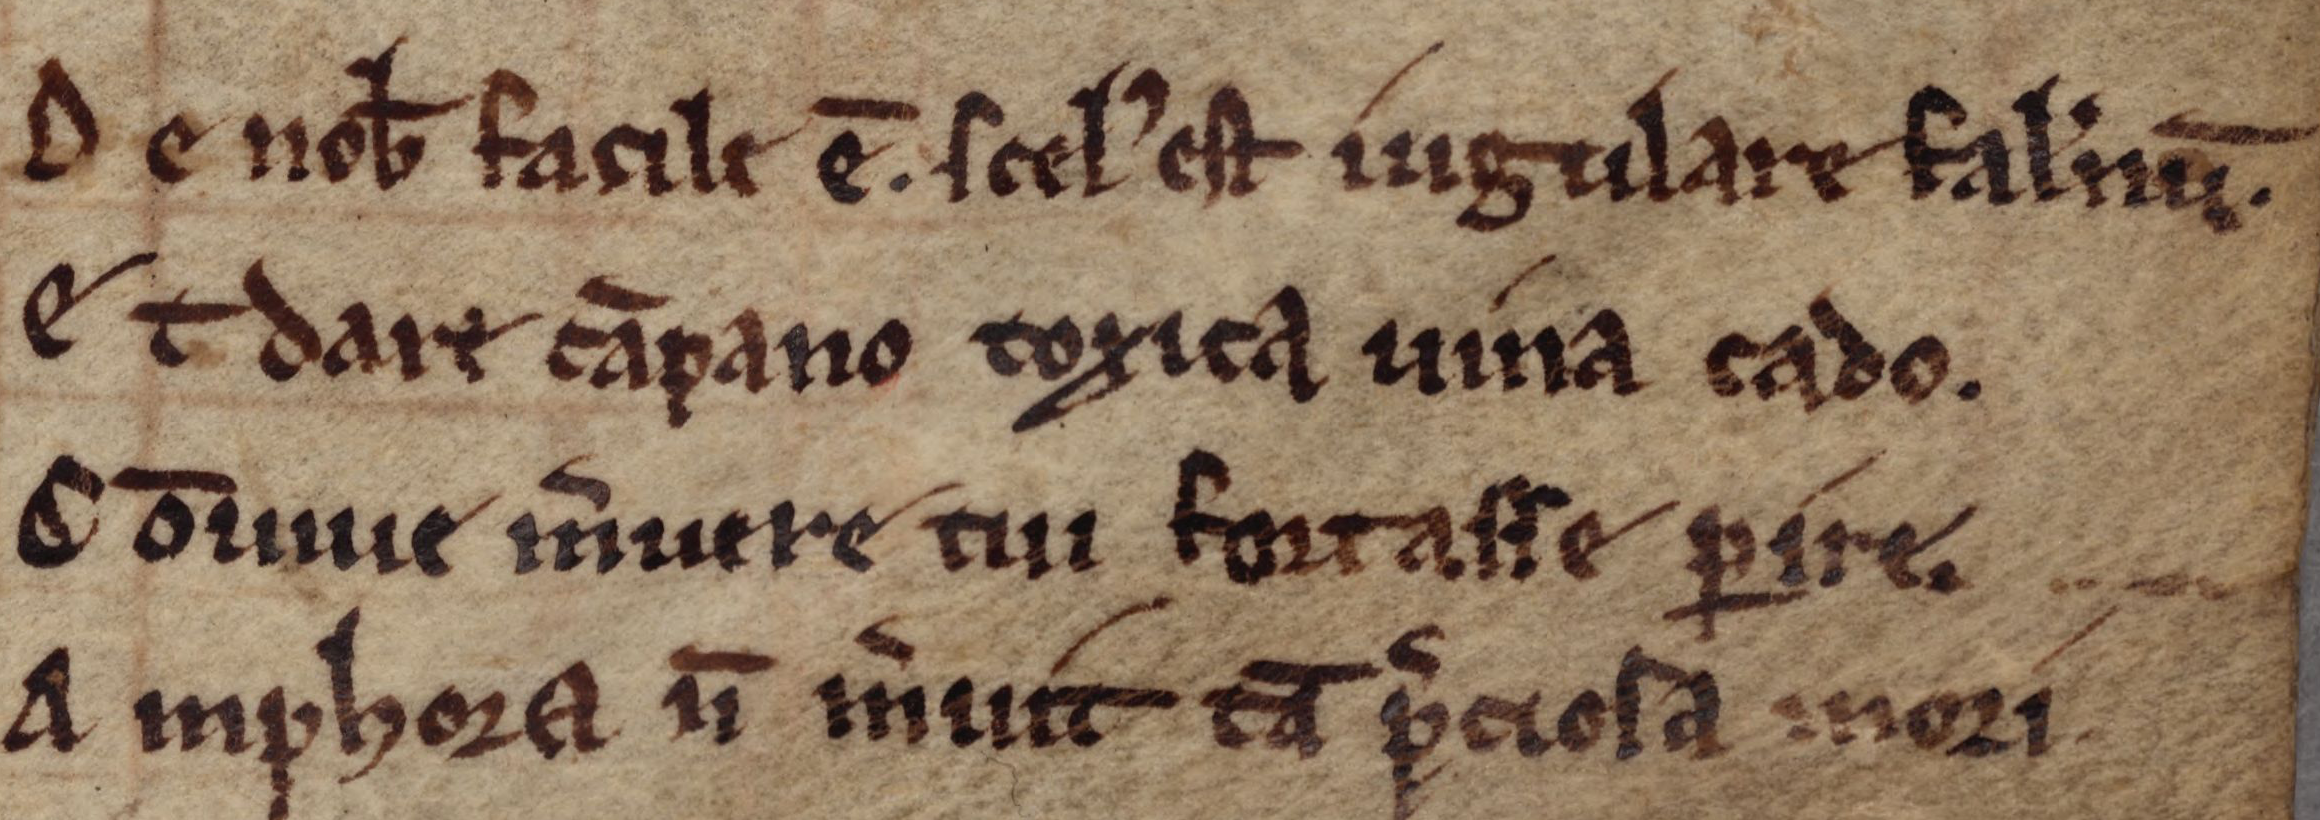 De nob̄ facile ē. scel᾽ est iugulare fal͛nū.
Et dare cāpano toxica uina cado.
Cōuiue m͛uere tui fortasse ꝑire.
Amphora ñ m͛uit tā p͛ciosa mori